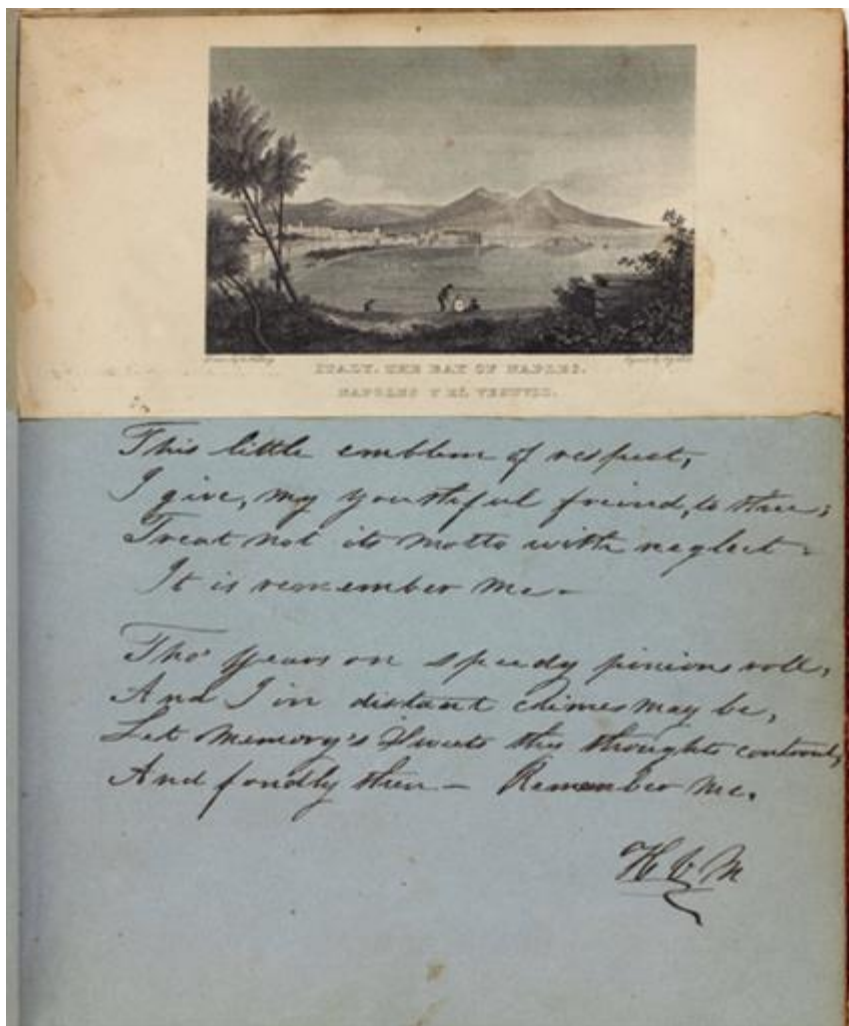 ITALY. THE BAY OF NAPLES.
NAPOLES Y EL VESUVIO.
This little emblem of respect,
I give, my youthful freind, to thee;
Treat not its motto with neglect-
It is remember me-
Tho' years on speedy pinions roll,
And I in distant climes may be,
Let Memory's Sweets thy thoughts controul,
And fondly then - Remember me.
H C M